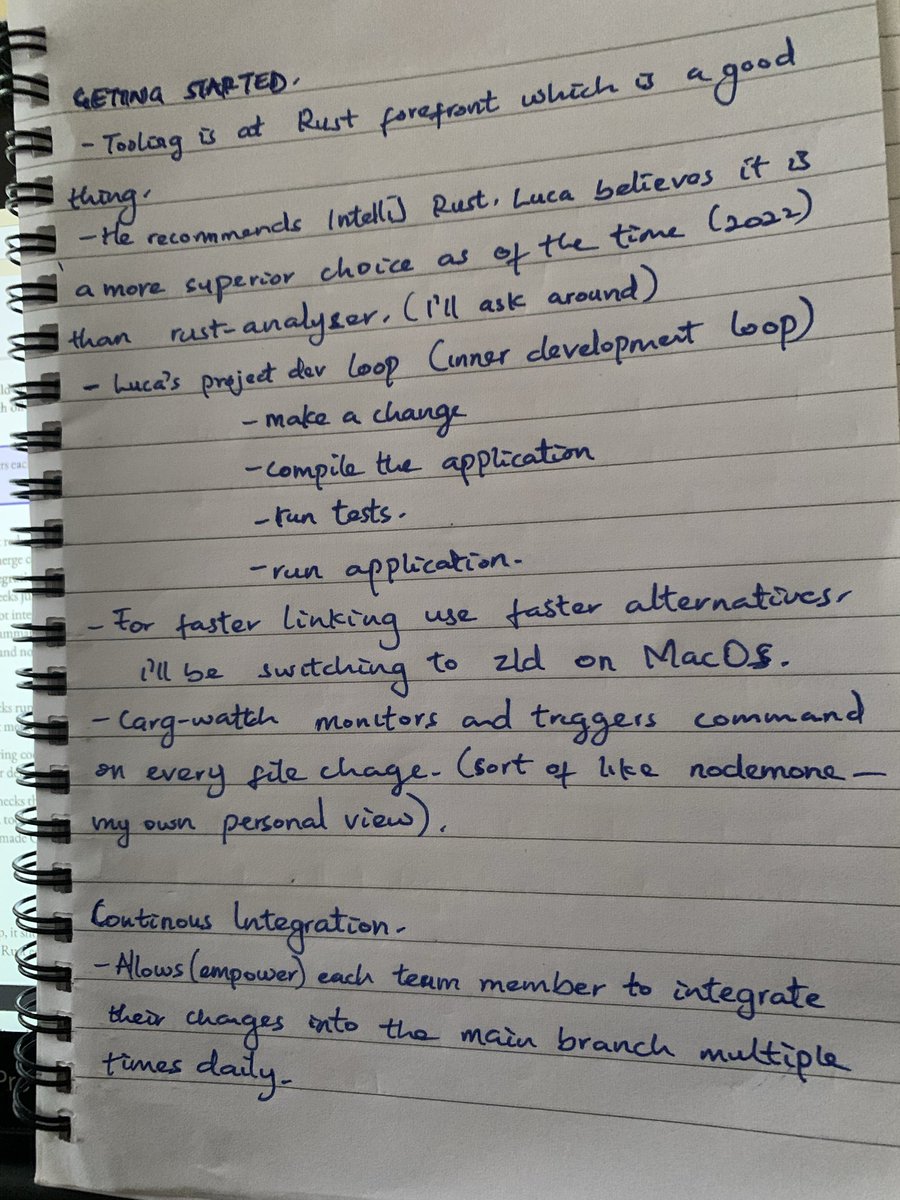 GETTING STARTED.
- Tooling is at Rust forefront which is a good
thing.
- He recommends IntelliJ Rust. Luca believes it is
a more superior choice as of the time (2022)
than rust-analyser. (I'll ask around)
- Luca's project dev loop (inner development loop)
- make a change
- compile the application
- run tests.
- run application.
- For faster linking use faster alternatives.
i'll be switching to zld on MacOS.
- Carg-watch monitors and triggers command
on every file chage. (sort of like nodemone -
my own personal view).
Continous Integration.
- Allows (empower) each team member to integrate
their changes into the main branch multiple
times daily.